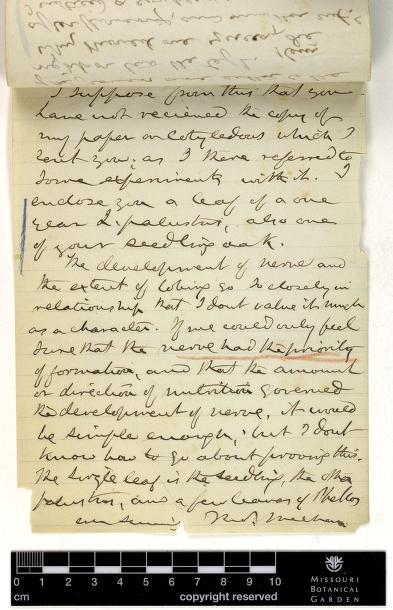 I suppose from this that you
have not recieved the copy of
my paper on cotyledons which I
sent you; as I there referred to
some experiments with it. I
enclose you a leaf of a one
year Q. palustris, also one
of your seedling oak.
The development of nerve and
the extent of lobing go so closely in
relationship that I dont value it much
as a character. If we could only feel
sure that the nerve had the priority
of formation, and that the amount
or direction of nutrition governed
the development of nerve, it would
be simple enough, but I dont
know how to go about proving this.
The single leaf is the seedling, the other
palustris, and a few leaves of Phellos
Thos. Meehan
cm 1 2 3 4 5 6 7 8 9 10
copyright reserved
MISSOURI
BOTANICAL
GARDEN